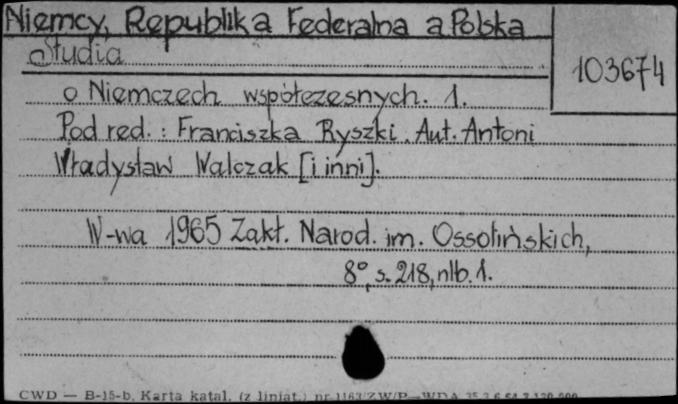 Niemcy, Republika Federalna a Polska
Studia
103674
o Niemczech współczesnych. 1.
Pod red.: Franciszka Ryszki. Aut. Antoni
Władysław Walczak [i inni].
W-wa 1965 Zakt. Narod. im. Ossolińskich,
8°, s. 218, nlb. 1.
CWD — B-15-b. Karta katal. (z liniat.) nr 1163/ZW/P—WDA